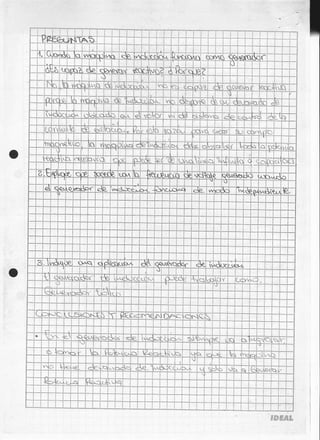 PREGUNTAS
1. Cuando la maquina de inducción funciona como generador
és capaz de generar reactivos? ó Por qué?
No, la maquina de inducción no es capaz de generar reactiva
porque la maquina de inducción no dispone de un devanado de
inducción ubicado en el rotor ni del sistema de control de la
corriente de Por lo tanto para crear su campo
magnético, la maquina de inducción debe absorber toda la potencia
reactiva necesaria que puede ser de una línea infinita o capacitores
2. Explique que sucede con la frecuencia de voltaje generado cuando
el generador de inducción funciona de modo Independiente
3. Indique una aplicación del generador de inducción
El generador de inducción puede trabajar como
Generador Eólico
CONCLUSIONES Y RECOMENDACIONES
• En el generador de inducción siempre va a ingresar
o tomar la Potencia Reactiva ya que la maquina
no tiene devanado de inducción y solo va a Generar
Potencia Reactiva
IDEAL